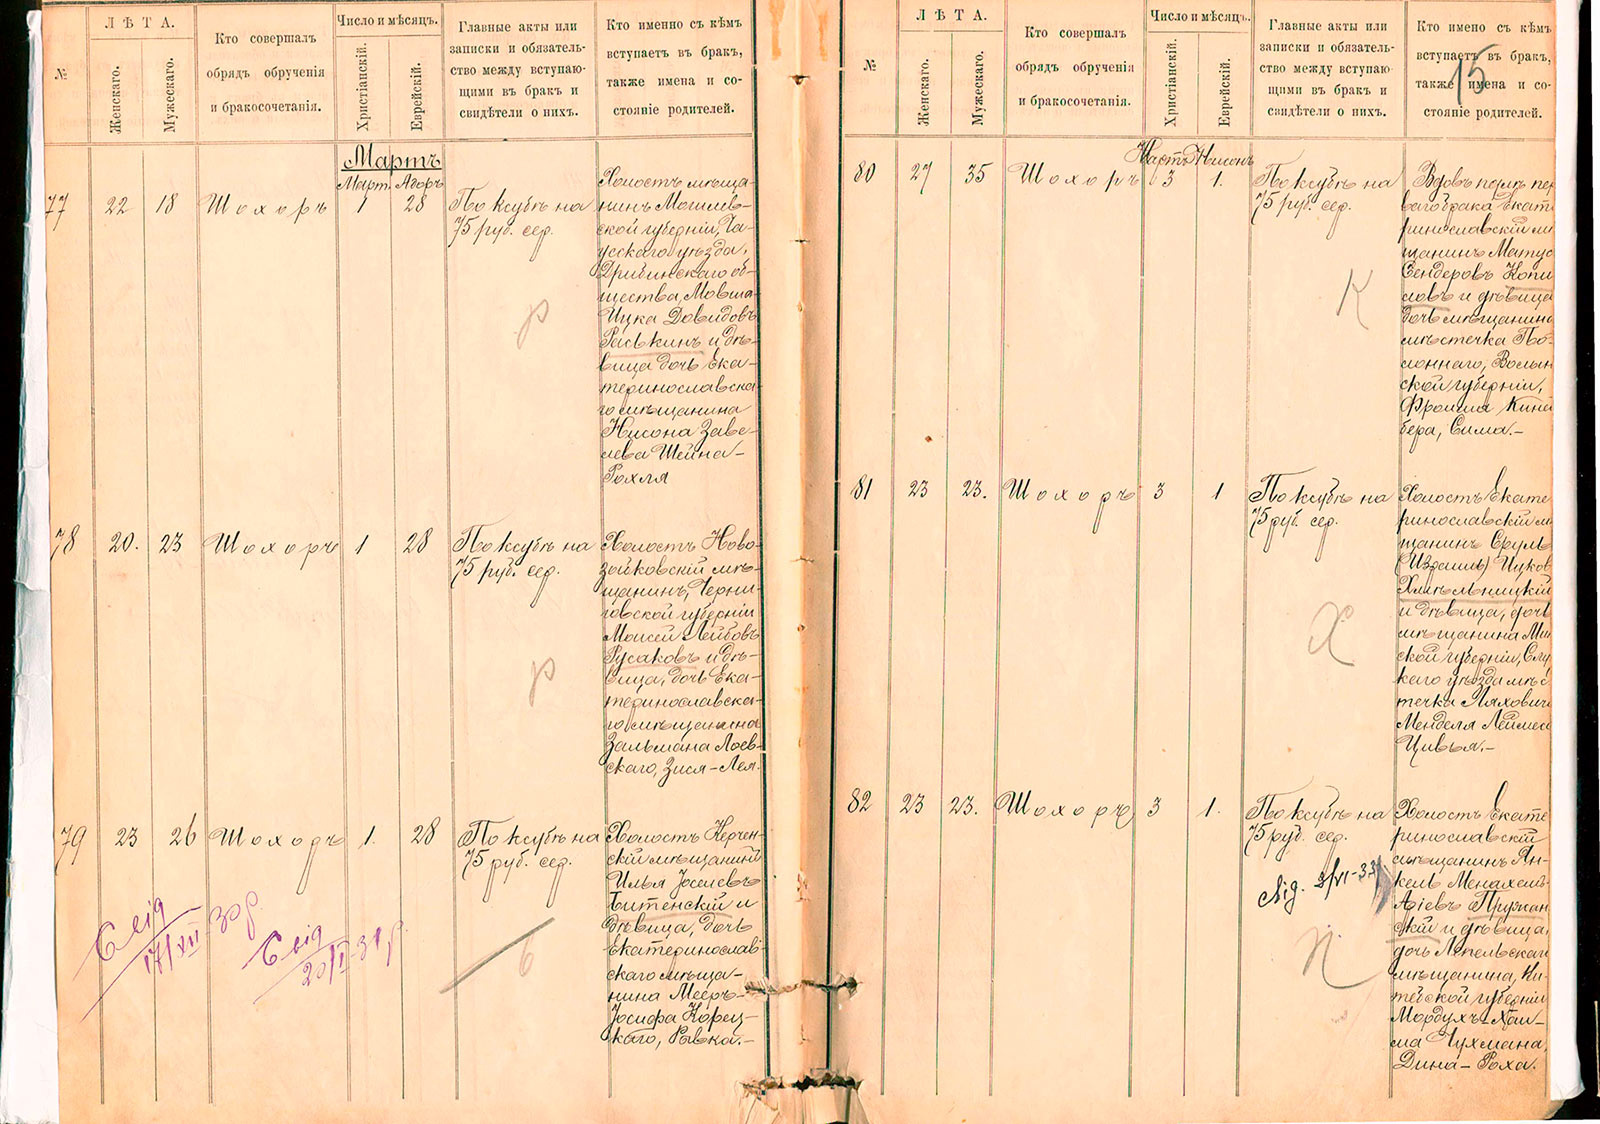 №
Л Ѣ Т А.
Женскаго.
Мужескаго.
Кто совершалъ
обрядъ обрученія
и бракосочетанія.
Число и мѣсяцъ.
Христіанскій.
Еврейскій.
Главные акты или
записки и обязатель-
ство между вступаю-
щими въ бракъ и
свидѣтели о нихъ.
Кто именно съ кѣмъ
вступаетъ въ бракъ,
также имена и со-
стояніе родителей.
Мартъ
Март. Адоръ
77 22 18 Шохоръ 1 28
По ксубѣ на
75 руб. сер.
Холостъ мѣща-
нинъ Могилев-
ской губерніи, Ча-
усскаго уѣзда,
Дрибинскаго об-
щества, Мовша-
Ицка Довидовъ
Раськинъ и дѣ-
вица дочь Ека-
теринославска-
го мѣщанина
Нисона Заве-
лева Шейна-
Рохля
р
78 20. 23 Шохоръ 1 28
По ксубѣ на
75 руб. сер.
Холостъ Ново-
зыбковскій мѣ-
щанинъ, Черни-
говской губерніи
Моисей Лейбовъ
Русаковъ и дѣ-
вица, дочь Ека-
теринославска-
го мѣщанина
Зальмана Лоев-
скаго, Зися-Лея.
р
79 23 26 Шохоръ 1. 28
По ксубѣ на
75 руб. сер.
Холостъ Керчен-
скій мѣщанинъ
Илья Іоселевъ
Битенскій и
дѣвица, дочь
Екатеринослав-
скаго мѣща-
нина Мееръ-
Іосифа Корец-
каго, Рывка.-
17/XII 30р.
20/I-31р.
№
Л Ѣ Т А.
Женскаго.
Мужескаго.
Кто совершалъ
обрядъ обрученія
и бракосочетанія.
Число и мѣсяцъ.
Христіанскій.
Еврейскій.
Главные акты или
записки и обязатель-
ство между вступаю-
щими въ бракъ и
свидѣтели о нихъ.
Кто имено съ кѣмъ
вступаетъ въ бракъ,
также имена и со-
стояніе родителей.
15
Мартъ Нисонъ
80 27 35 Шохоръ 3 1.
По ксубѣ на
75 руб. сер.
Вдовъ послѣ пер
ваго брака, Екат
ринославскій мѣ
щанинъ Матус
Сендеровъ Копи
ловъ и дѣвица
дочь мѣщанина
мѣстечка По-
лоннаго, Волын
ской губерніи,
Фроима Кинс
бера, Сима.-
К
81 23 23. Шохоръ 3 1
По ксубѣ на
75 руб. сер.
Холостъ Екате
ринославскій м
щанинъ Сруль
(Израиль) Ицков
Хмѣльницкій
и дѣвица, дочь
мѣщанина Мин
ской губерніи, Слу
каго уѣзда мѣс
течка Ляхович
Менделя
Цивья.-
Х
82 23 23. Шохоръ 3 1.
По ксубѣ на
75 руб. сер.
Холостъ Екате
ринославскій
мѣщанинъ Ян-
кель Менахемъ-
Пружан
скій и дѣвица,
дочь Лепельскаго
мѣщанина, Ви-
тебской губерніи
Мордухъ-Хаи-
ма Чухмана,
Дина-Роха.